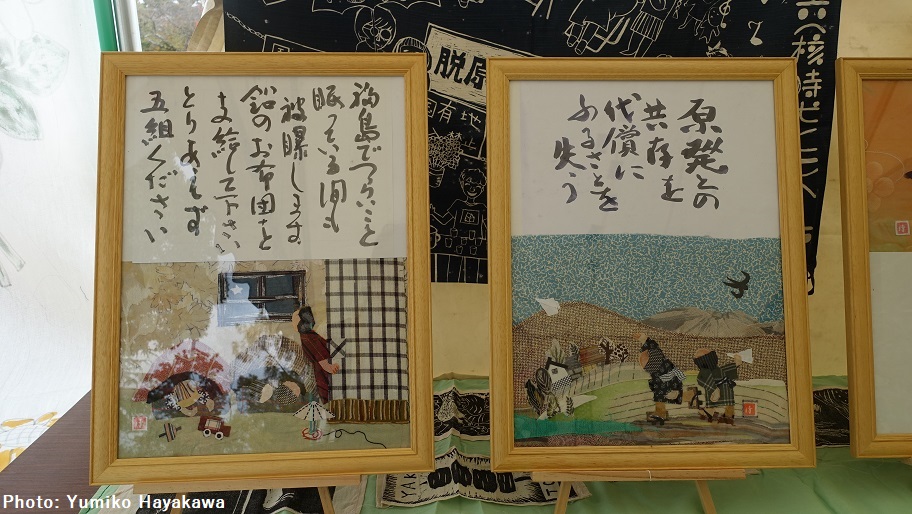 福島でつらいこと
眠っている間も
被曝します
鉛のお布団を
支給して下さい
とりあえず
五組ください
原発との
共存を
代償に
ふるさとを
失う
脱原
Photo: Yumiko Hayakawa